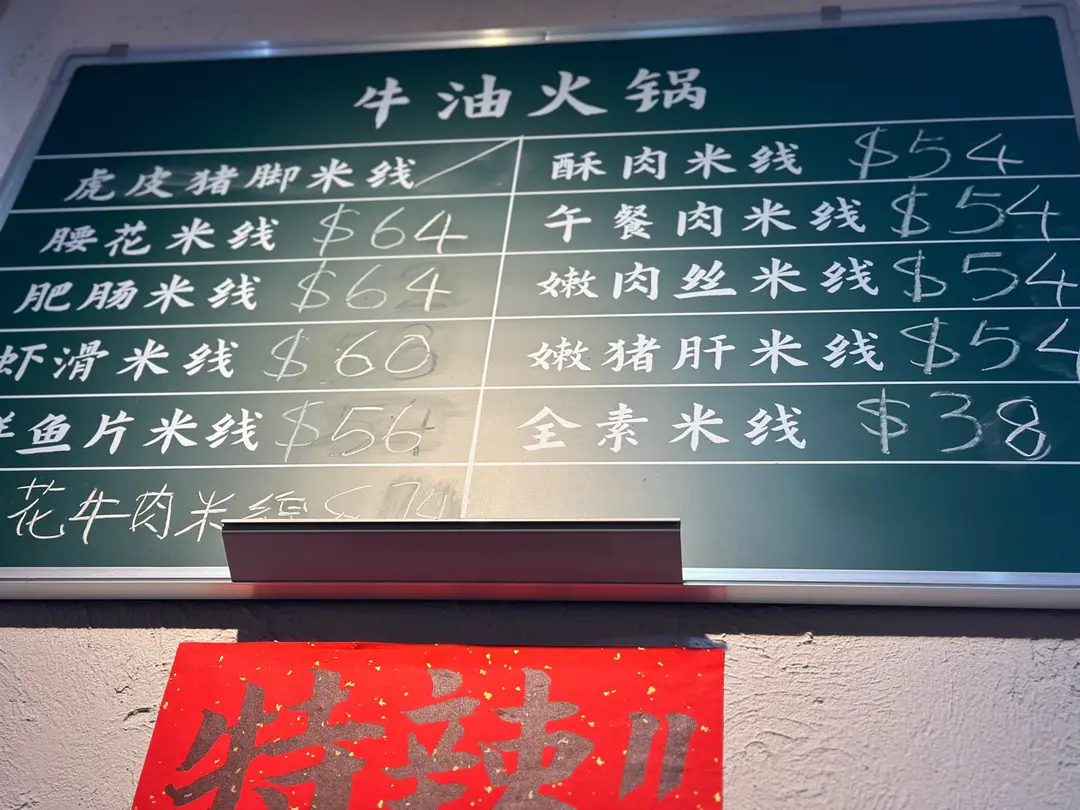 牛油火锅
虎皮猪脚米线
腰花米线 $64
肥肠米线 $64
虾滑米线 $60
鱼片米线 $56
花牛肉米线 $74
酥肉米线 $54
午餐肉米线 $54
嫩肉丝米线 $54
嫩猪肝米线 $54
全素米线 $38
特辣!!